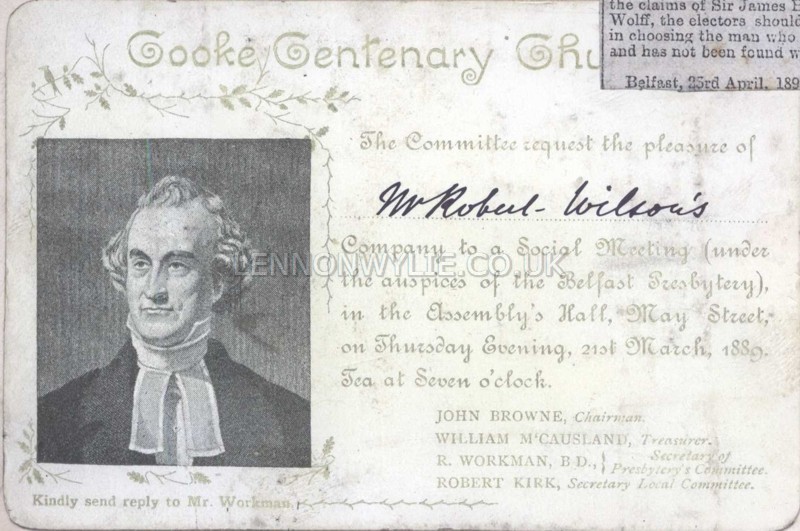 Cooke Centenary Chu
the claims of Sir James
Wolff, the electors should
in choosing the man who
and has not been found
Belfast, 23rd April, 189
The Committee request the pleasure of
Mr Robert Wilson's
Company to a Social Meeting (under
the auspices of the Belfast Presbytery),
in the Assembly's Hall, May Street,
on Thursday Evening, 21st March, 1889.
Tea at Seven o'clock.
JOHN BROWNE, Chairman.
WILLIAM M'CAUSLAND, Treasurer.
R. WORKMAN, B.D., Secretary of Presbytery's Committee.
ROBERT KIRK, Secretary Local Committee.
Kindly send reply to Mr. Workman
LENNONWYLIE.CO.UK